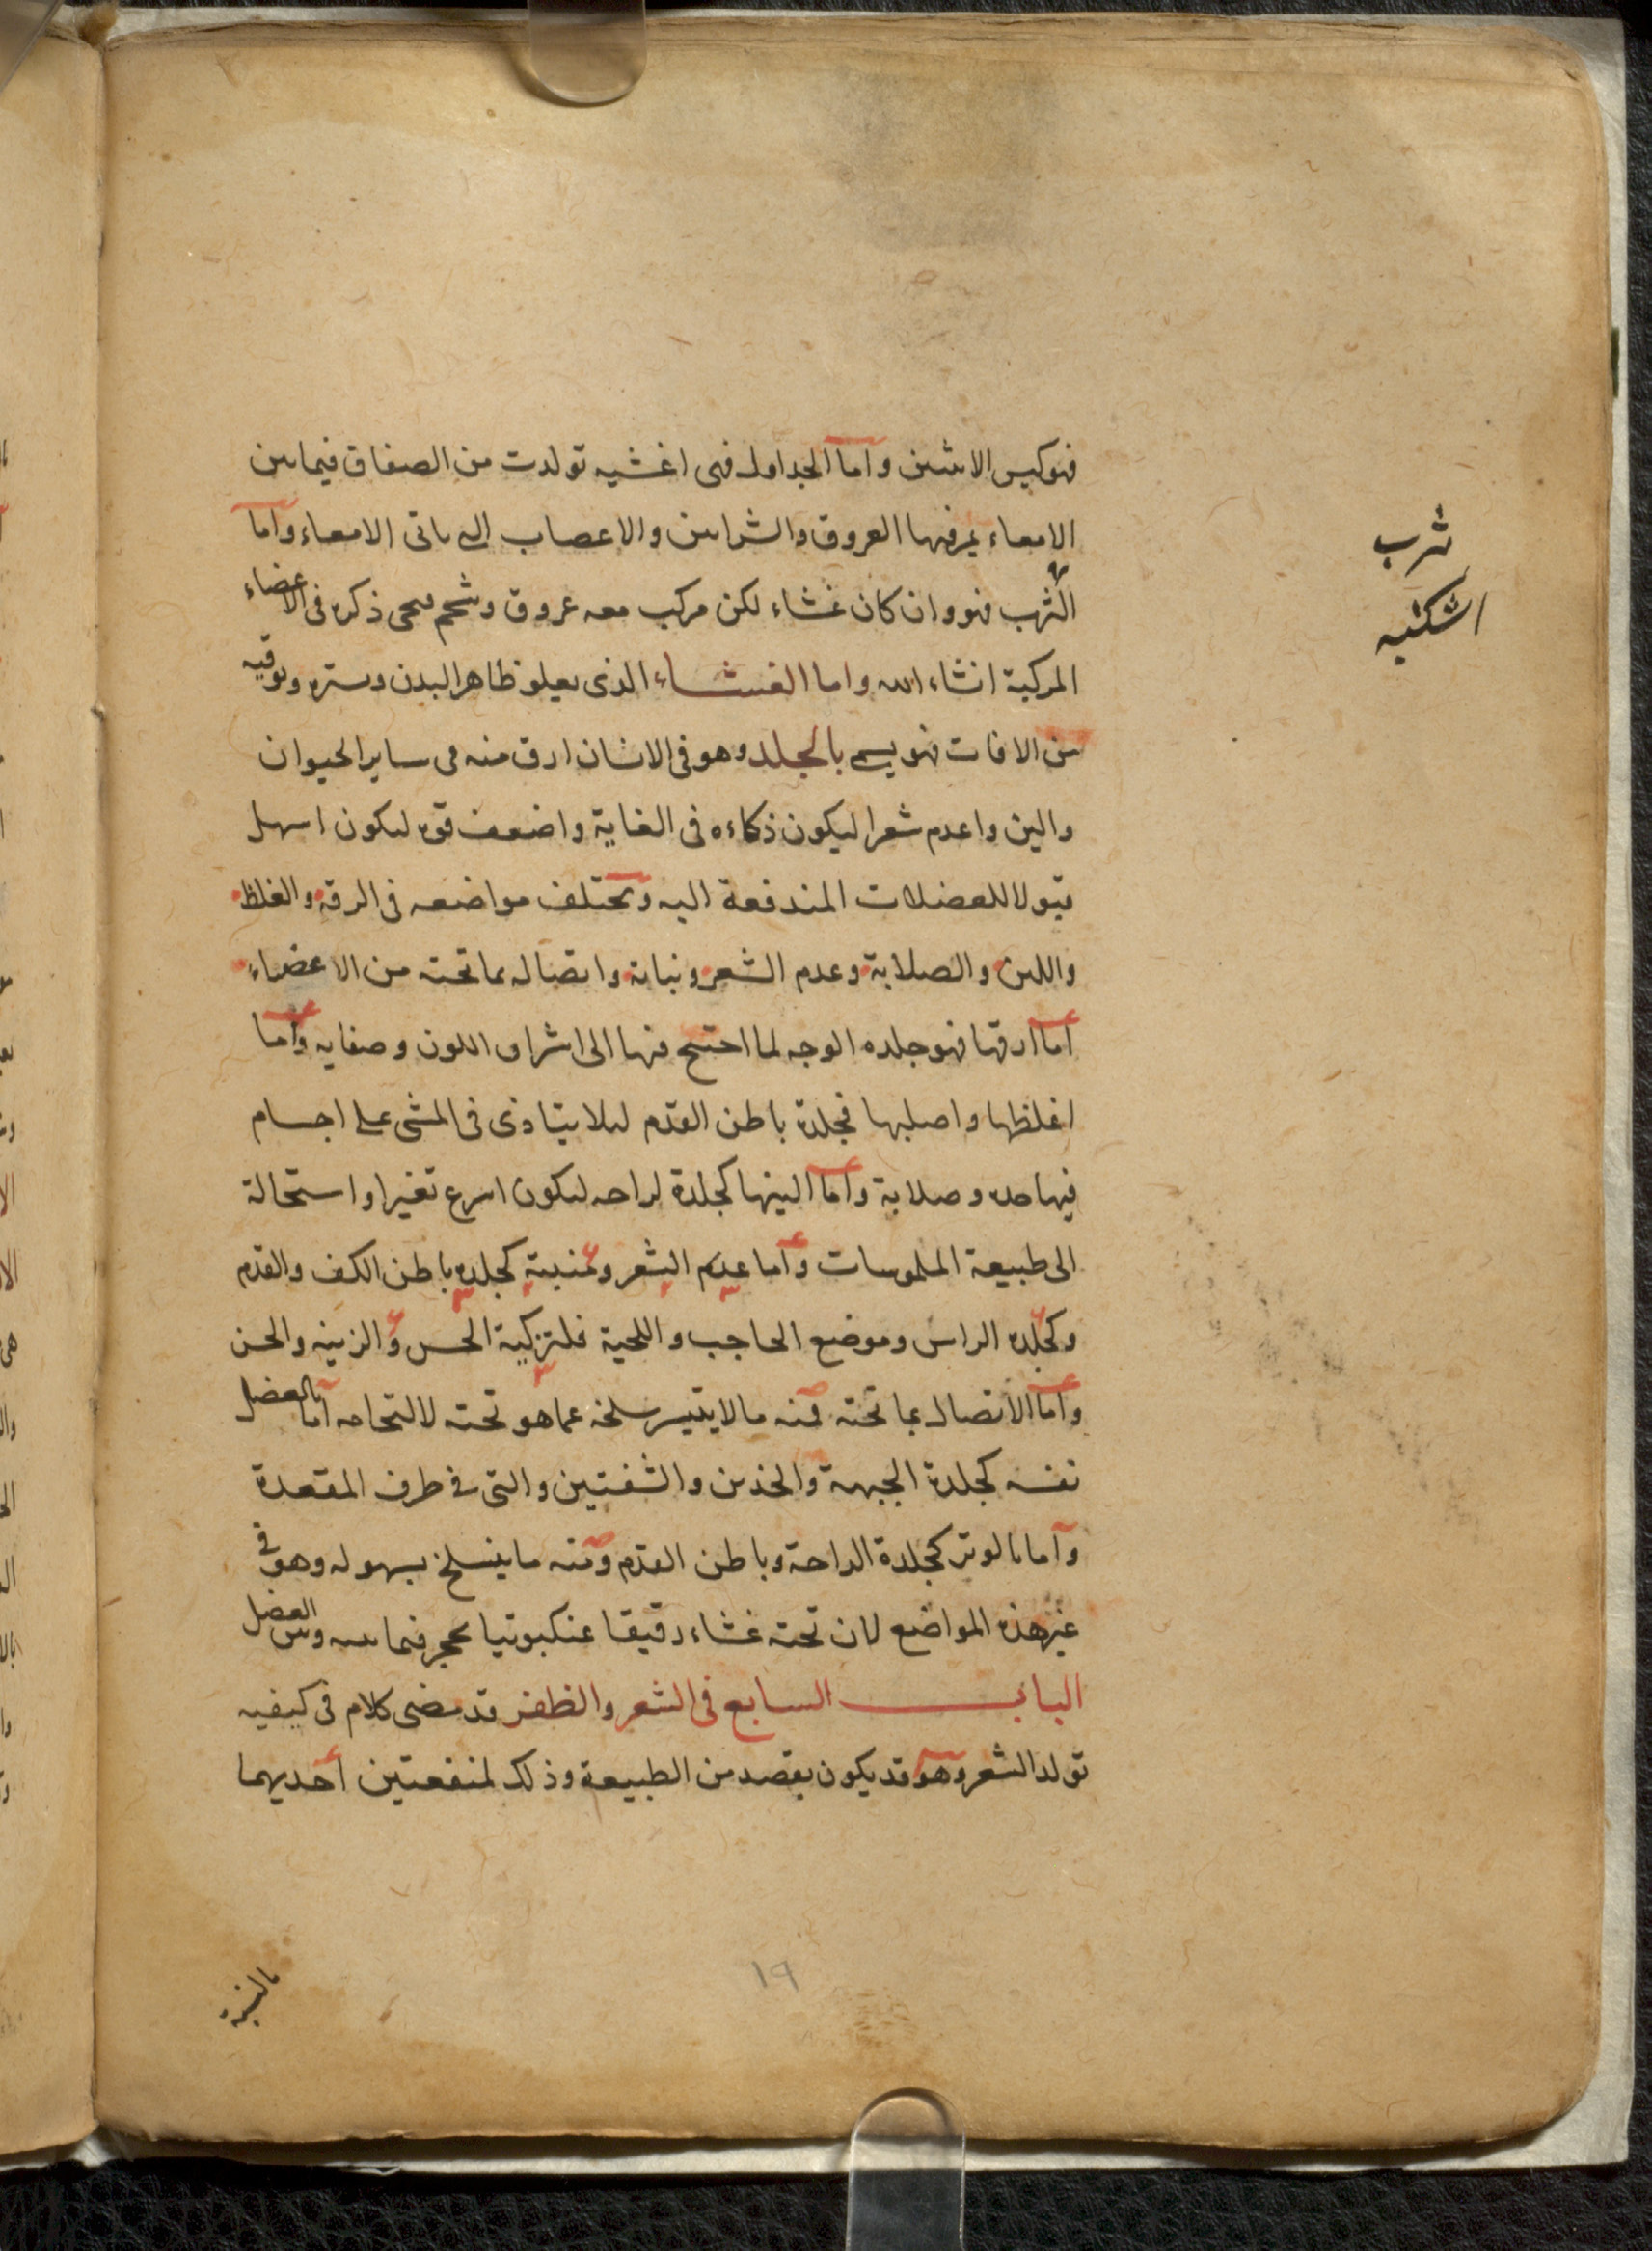 فهو كيس الانثيين واما الجداول فهى اغشيه تولدت من الصفاق فيما بين
الامعاء يمر فيها العروق والشرايين والاعصاب التى تاتى الامعاء واما
الثرب فهو وان كان غشاء لكن مركب معه عروق وشحم سيجى ذكره فى الاعضاء
المركبة انشاء الله واما الغشاء الذى يعلو ظاهر البدن وستره وتوقيه
من الافات فهو يسمى بالجلد وهو فى الانسان ارق منه فى ساير الحيوان
والين واعدم شعرا ليكون ذكاءه فى الغاية واضعف قوه ليكون اسهل
قبولا للفضلات المندفعة اليه وتختلف مواضعه فى الرقة والغلظ
واللين والصلابة وعدم الشعر ونباته واتصاله بما تحته من الاعضاء
اما ارقها فهو جلده الوجه لما احتيج فيها الى اشراق اللون وصفايه واما
اغلظها واصلبها فجلدة باطن القدم ليلا يتاذى فى المشى على اجسام
فيها حده وصلابة واما الينها كجلدة الراحه ليكون اسرع تغيرا واستحالة
الى طبيعة الملموسات واما عدم الشعر ومنبته كجلده باطن الكف والقدم
وكجلده الراس وموضع الحاجب واللحية فلتزكية الحس والزينه والحسن
واما الاتصال بما تحته فمنه ما لا يتيسر سلخه عما هو تحته لالتحامه اما بالعضل
نفسه كجلدة الجبهة والخدين والشفتين والتى فى طرف المقعدة
واما بالوتر كجلدة الراحة وباطن القدم ومنه ما ينسلخ بسهوله وهو فى
غير هذه المواضع لان تحته غشاء رقيقا عنكبوتيا يحجز فيما بينه وبين العضل
الباب السابع فى الشعر والظفر قد مضى كلام فى كيفيه
تولد الشعر وهو قد يكون بقصد من الطبيعة وذلك لمنفعتين احديهما
ثرب
اشكنبه
بالنسبة
١٩